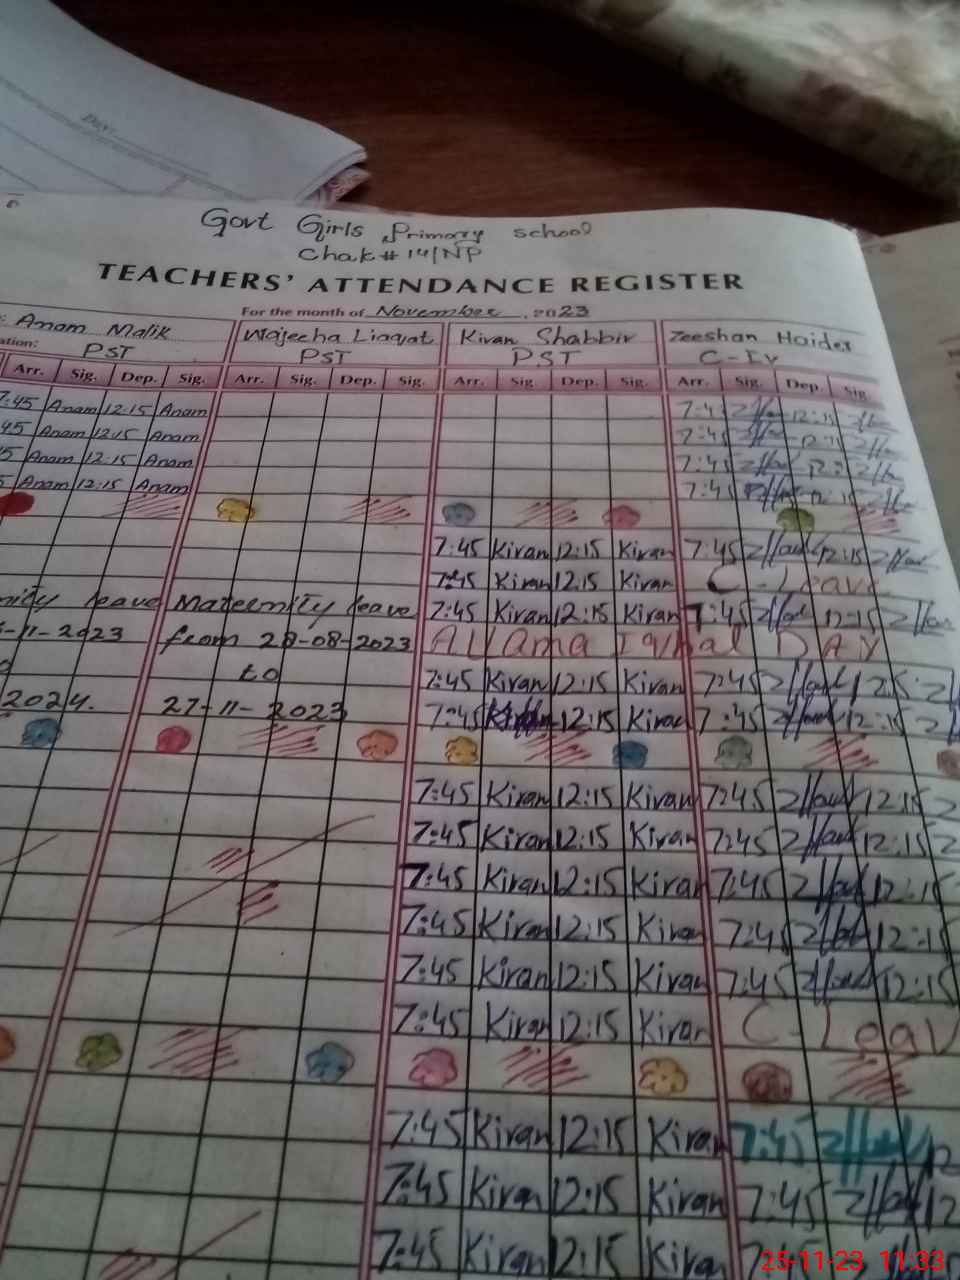 Day:
Govt Girls Primary school
Chak # 14/NP
TEACHERS' ATTENDANCE REGISTER
For the month of November, 2023
: Anam Malik Wajeeha Liaqat Kiran Shabbir Zeeshan Haider
ation: PST PST PST C-IV
Arr. Sig. Dep. Sig. Arr. Sig. Dep. Sig. Arr. Sig. Dep. Sig. Arr. Sig. Dep. Sig.
7:45 Anam 12:15 Anam 7:45 12:15
45 Anam 12:15 Anam 7:45
5 Anam 12:15 Anam 7:45
5 Anam 12:15 Anam 7:45 12:15
7:45 Kiran 12:15 Kiran 7:45 12:15
7:45 Kiran 12:15 Kiran C-Leave
nity leave Maternity leave 7:45 Kiran 12:15 Kiran 7:45 12:15
-11-2023 from 28-08-2023 Allama Iqbal DAY
to 7:45 Kiran 12:15 Kiran 7:45
2024. 27-11-2023 7:45 Kiran 12:15 Kiran 7:45 12:15
7:45 Kiran 12:15 Kiran 7:45 12:15
7:45 Kiran 12:15 Kiran 7:45 12:15
7:45 Kiran 12:15 Kiran 7:45 12:15
7:45 Kiran 12:15 Kiran 7:45 12:15
7:45 Kiran 12:15 Kiran 7:45 12:15
7:45 Kiran 12:15 Kiran C-Leav
7:45 Kiran 12:15 Kiran 7:45 12
7:45 Kiran 12:15 Kiran 7:45 12
7:45 Kiran 12:15 Kira 7:45
25-11-23 11:33